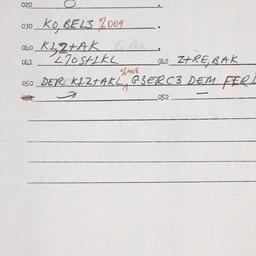 020
030 KO,BELS %009
040 KI,Z+AK
041 L70S+1KL 042 Z+RE,BAK
%408
050 DER KIZ+AKL, G3ERC3 DEM FERL
051 052